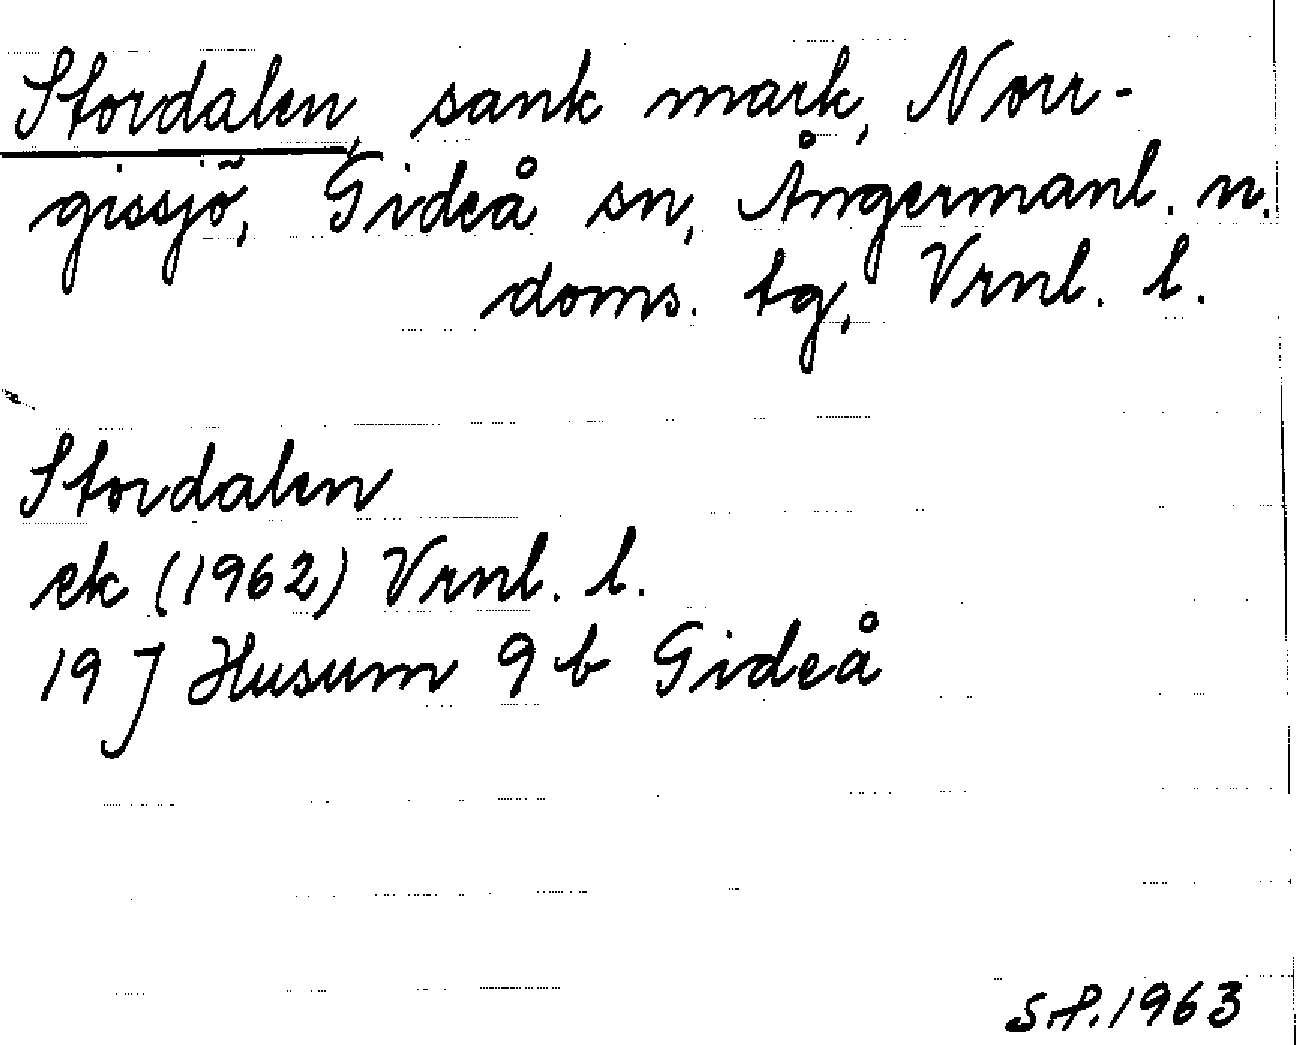 Stordalen, sank mark, Norr-
gissjö, Gideå sn, Ångermanl. n.
doms. tg, Vrnl. l.
Stordalen
ek (1962) Vrnl. l.
19 J Husum 9 b Gideå
S.P. 1963